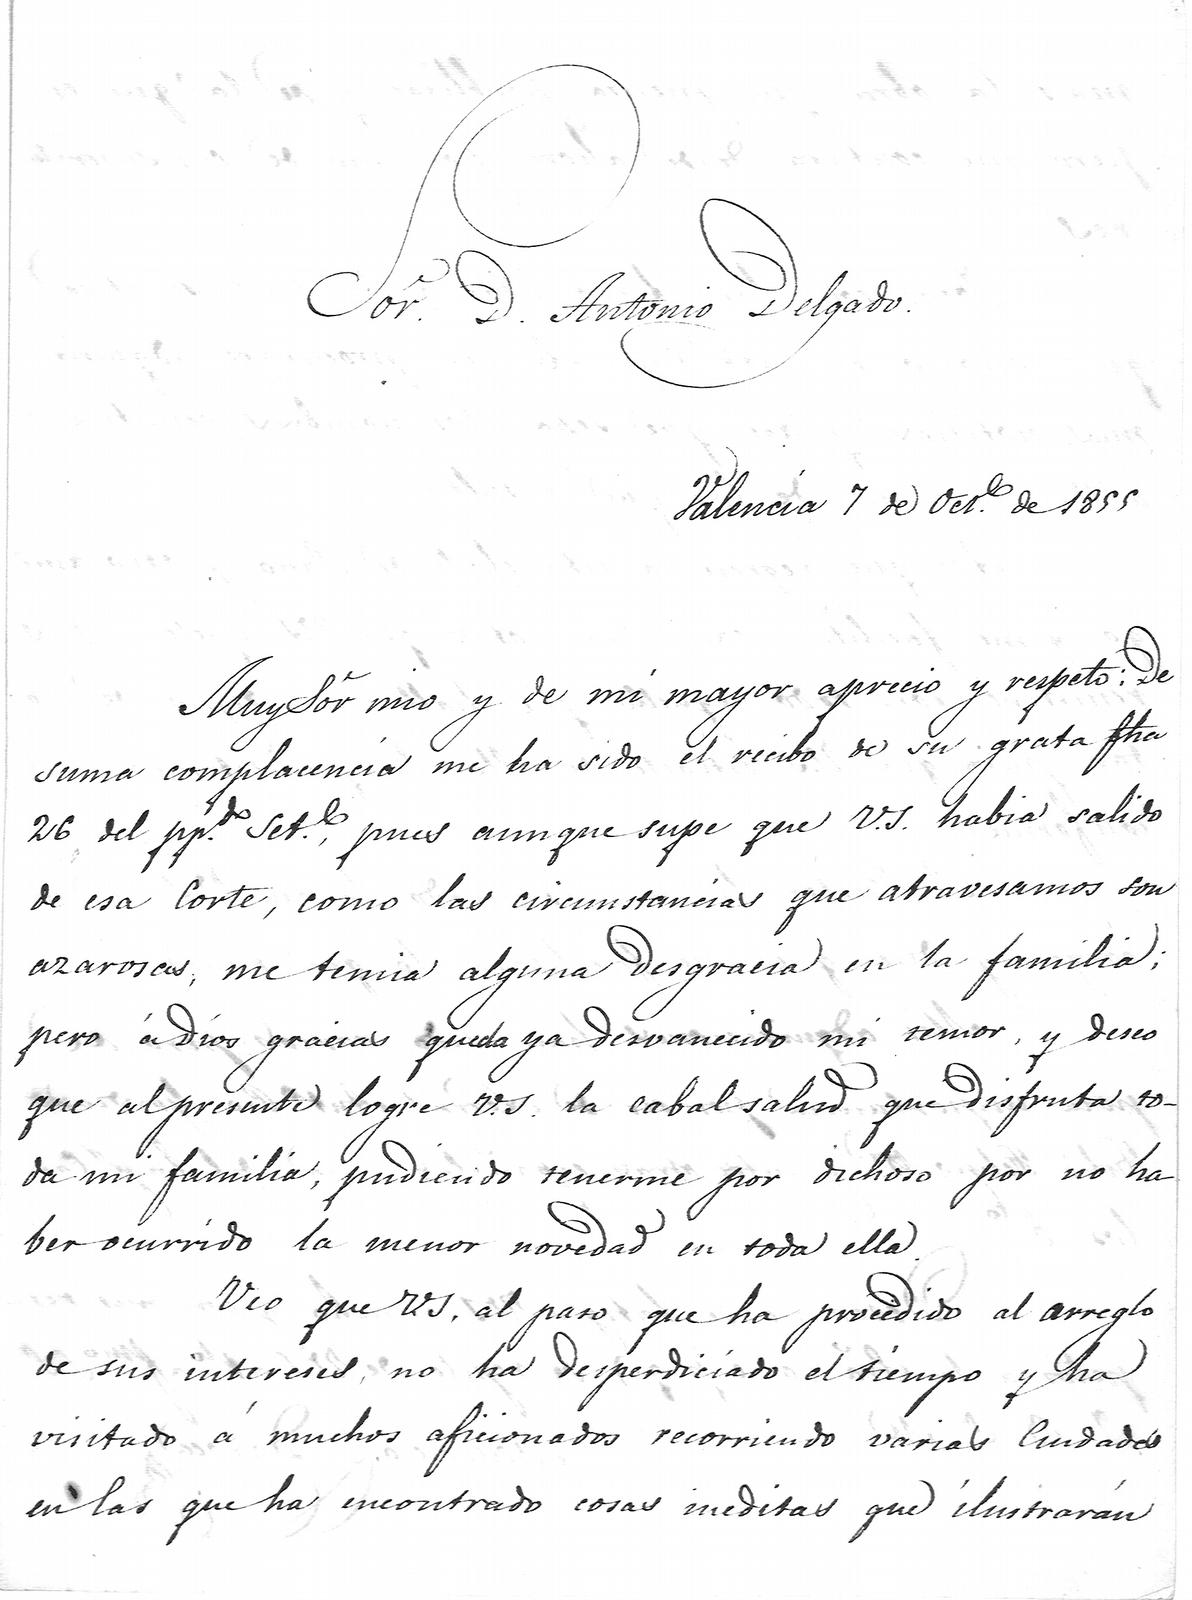 Sor. D. Antonio Delgado.
Valencia 7 de Oct.e de 1855
Muy Sor mio y de mi mayor aprecio y respeto: De
suma complacencia me ha sido el recibo de su grata fha
26 del pp.do Set.e, pues aunque supe que V.S. habia salido
de esa Corte, como las circunstancias que atravesamos son
azarosas, me temia alguna desgracia en la familia;
pero á Dios gracias queda ya desvanecido mi temor, y deseo
que al presente logre V.S. la cabal salud que disfruta to-
da mi familia, pudiendo tenerme por dichoso por no ha
ber ocurrido la menor novedad en toda ella.
Veo que V.S. al paso que ha procedido al arreglo
de sus intereses, no ha desperdiciado el tiempo y ha
visitado á muchos aficionados recorriendo varias Ciudades
en las que ha encontrado cosas ineditas que ilustrarán